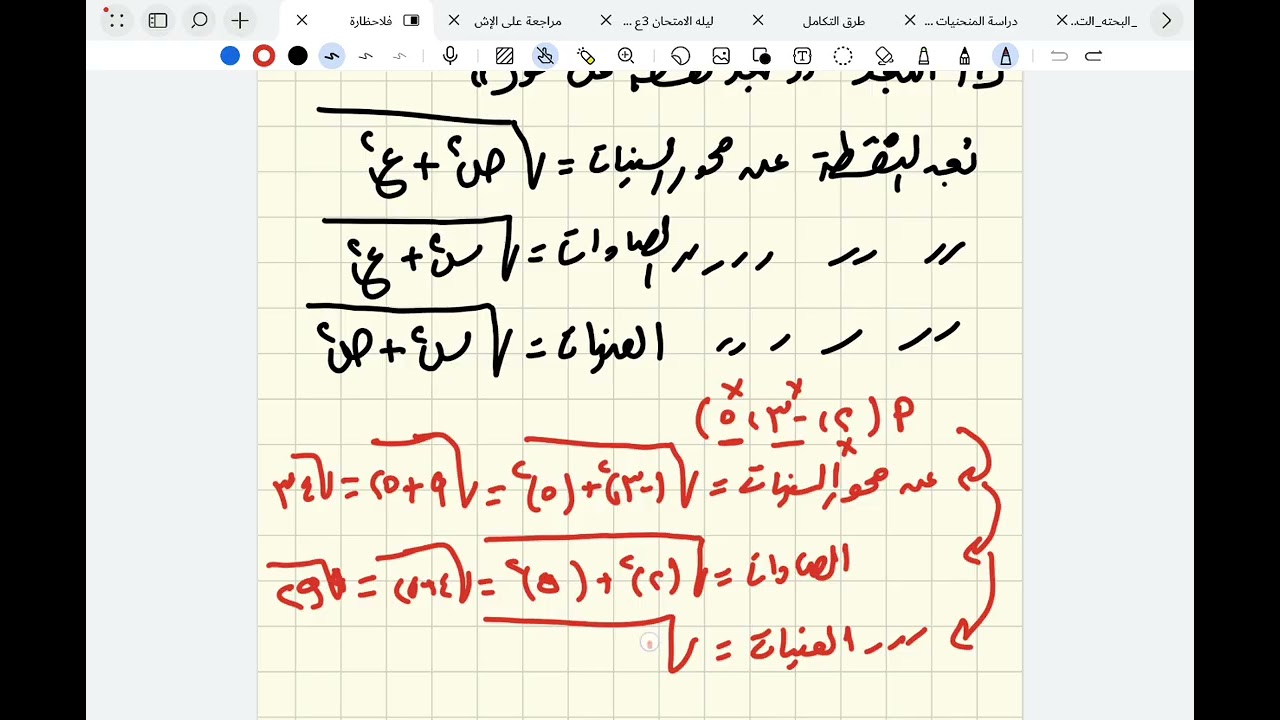 فلاحظارة مراجعة على الإش ليله الامتحان 3ع ... طرق التكامل دراسة المنحنيات ... _البحته_الت..
بُعد النقطة عن محور السينات = √(ص٢ + ع٢)
〃 〃 〃 الصادات = √(س٢ + ع٢)
〃 〃 〃 العينات = √(س٢ + ص٢)
P (٢، -٣، ٥)
عن محور السينات = √((-٣)٢ + (٥)٢) = √(٩ + ٢٥) = √٣٤
الصادات = √((٢)٢ + (٥)٢) = √(٤ + ٢٥) = √٢٩
〃 العينات = √